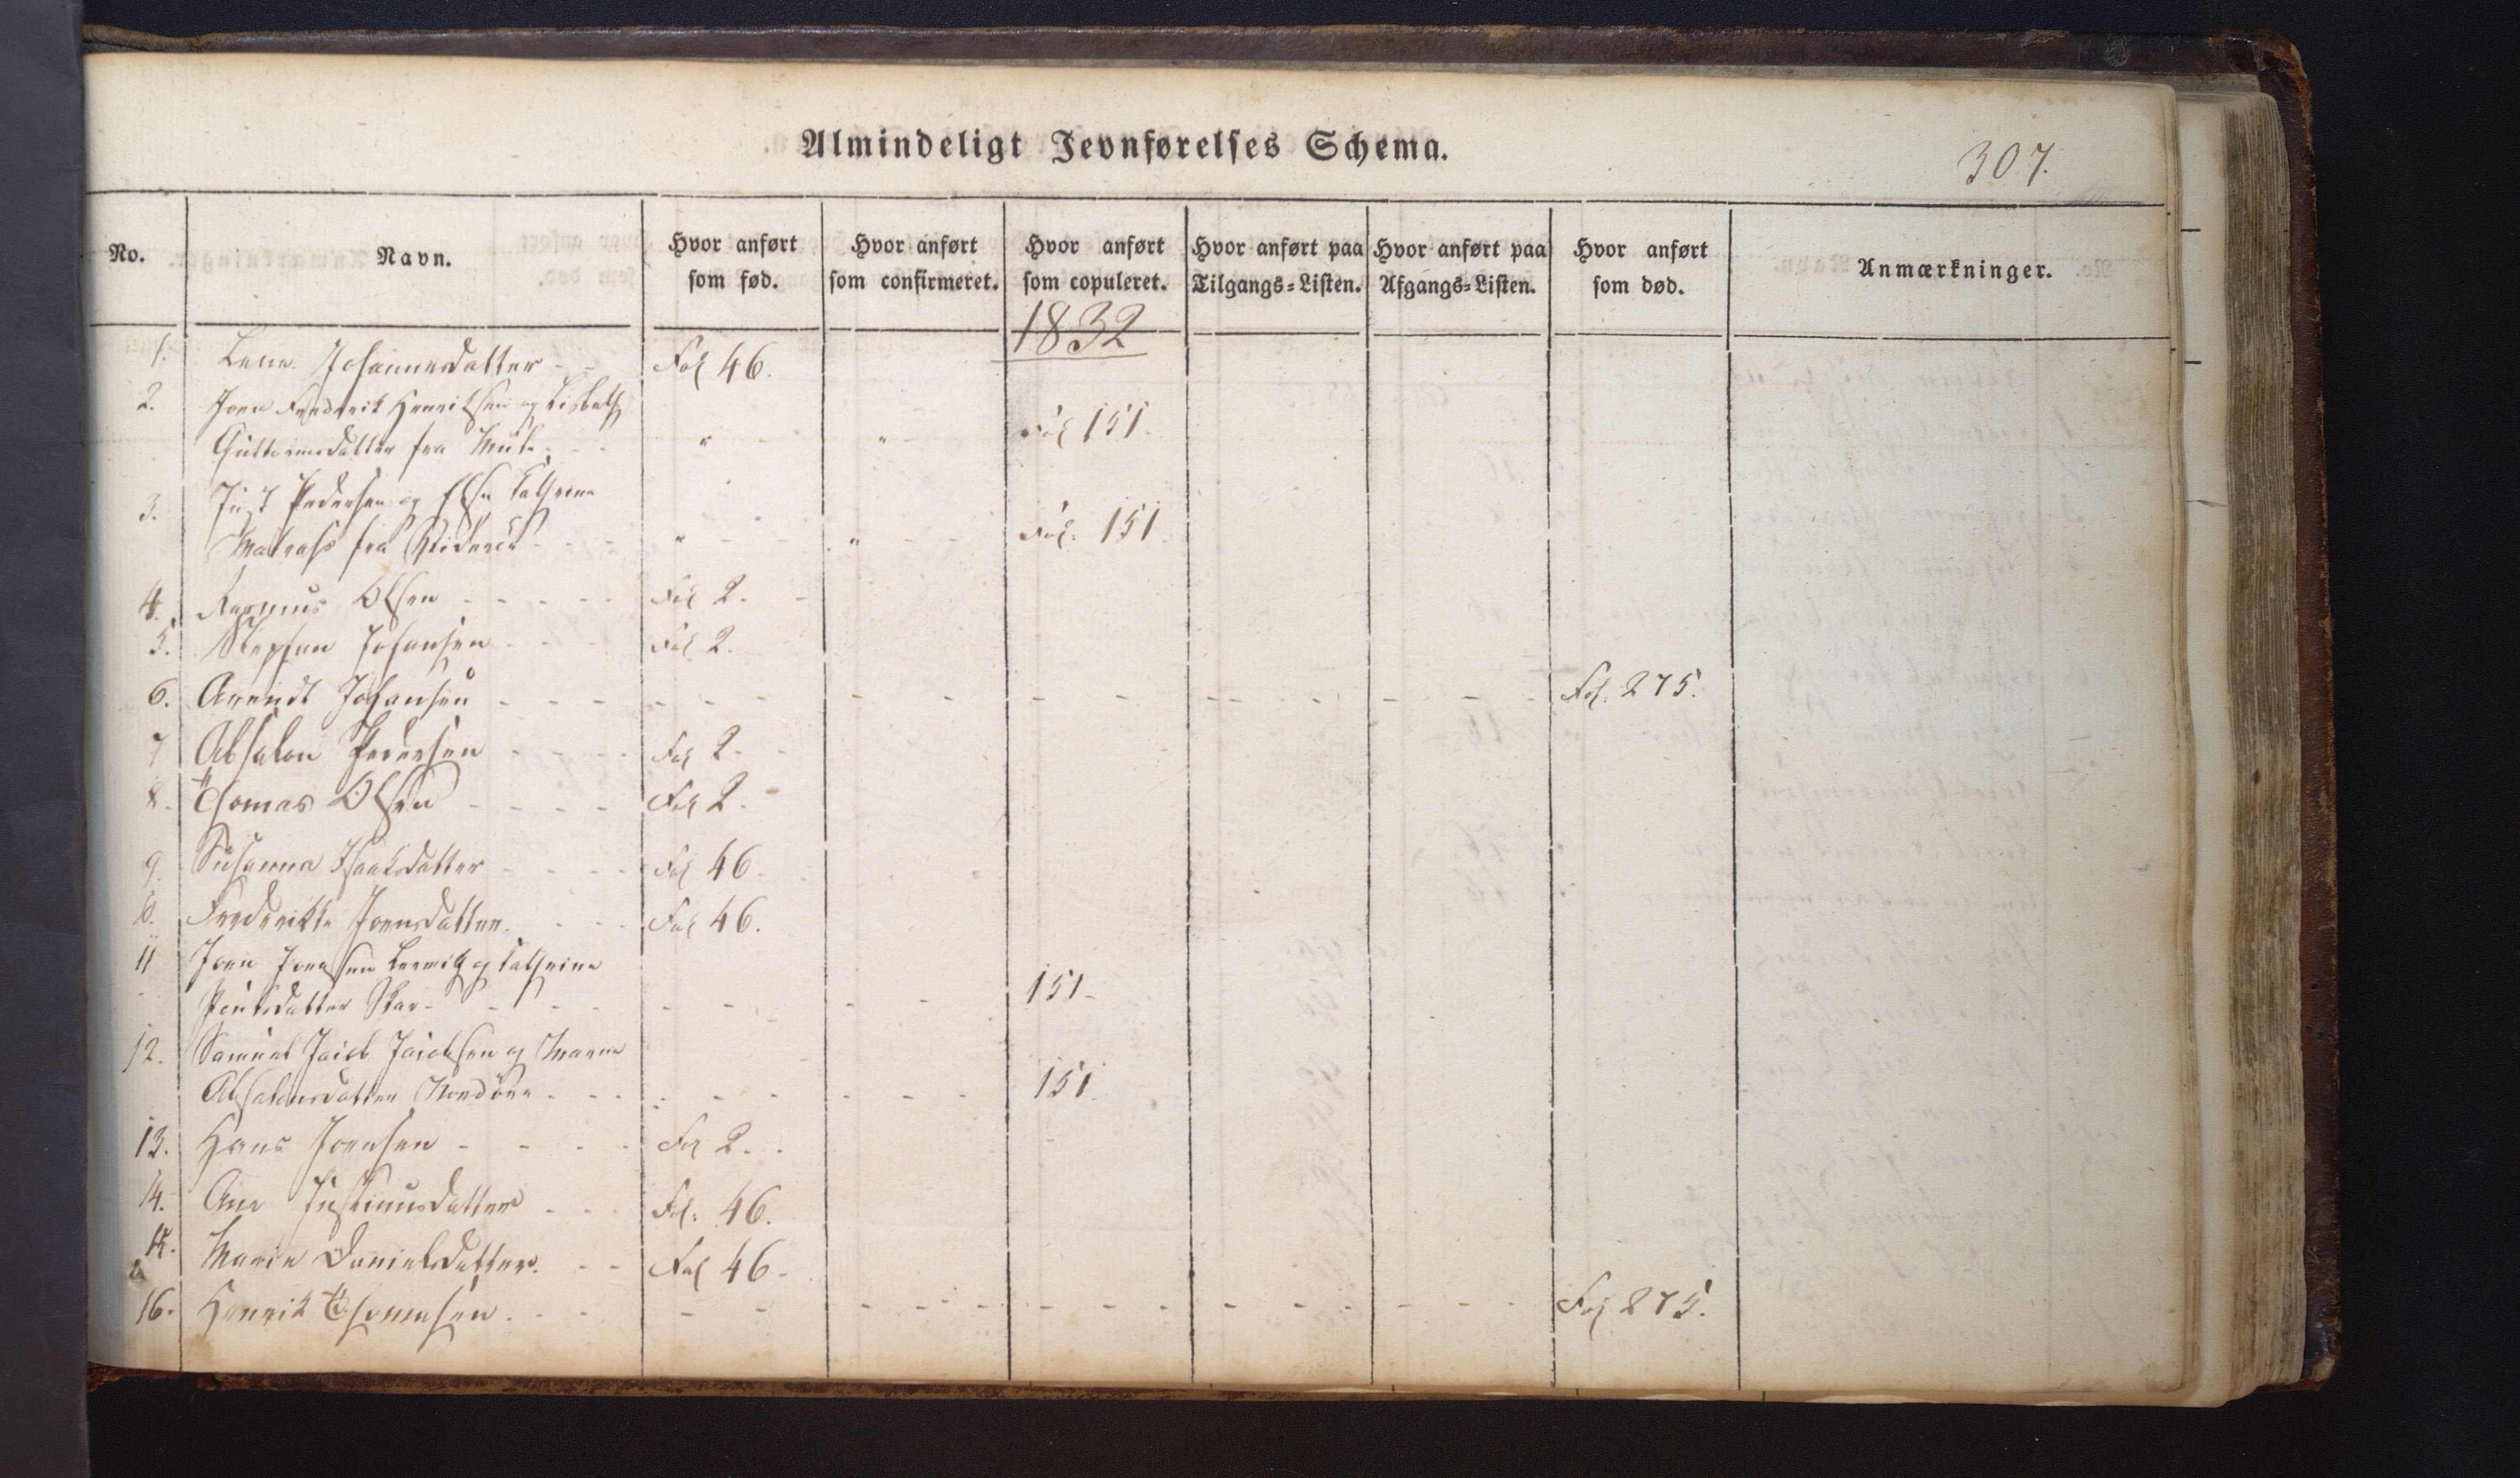 Almindeligt Jevnførelses Schema.
307.
No. Navn. Hvor anført som fød. Hvor anført som confirmeret. Hvor anført som copuleret. Hvor anført paa Tilgangs-Listen. Hvor anført paa Afgangs-Listen. Hvor anført som død. Anmærkninger.
1832
1. Lene Johannesdatter - - Fol 46.
2. Joen Frederik Henriksen og Lisbeth
Guttormsdatter fra Mule - - - " - " - Fol 151.
3. Just Pedersen og Else Cathrine
Matrass fra - - - " - - - " - - - Fol. 151.
4. Rasmus Olsen - - - - - Fol 2. -
5. Stephan Johansen - - - - Fol 2.
6. Arendt Johansen - - - - - - - - - - - - - - - - - Fol. 275.
7 Absalon Pedersen - - - - Fol 2. -
8. Thomas Olsen - - - - Fol 2.
9. Susanna Isaksdatter - - - - Fol 46.
10. Frederikke Joensdatter. - - - Fol 46.
11 Joen Joensen Lervig og Cathrine
Poulsdatter Skar - - - - - - - - 151 -
12. Samuel Jacob Jacobsen og Maren
Absalonsdatter Nordøre - - - - - - - - - 151.
13. Hans Joensen - - - - Fol 2. -
14. Ane Justinusdatter - - - Fol. 46.
15. Maria Danielsdatter. - - Fol 46 -
16. Henrik Thomasen. - - - - - - - - - - - - - - - - Fol 275.